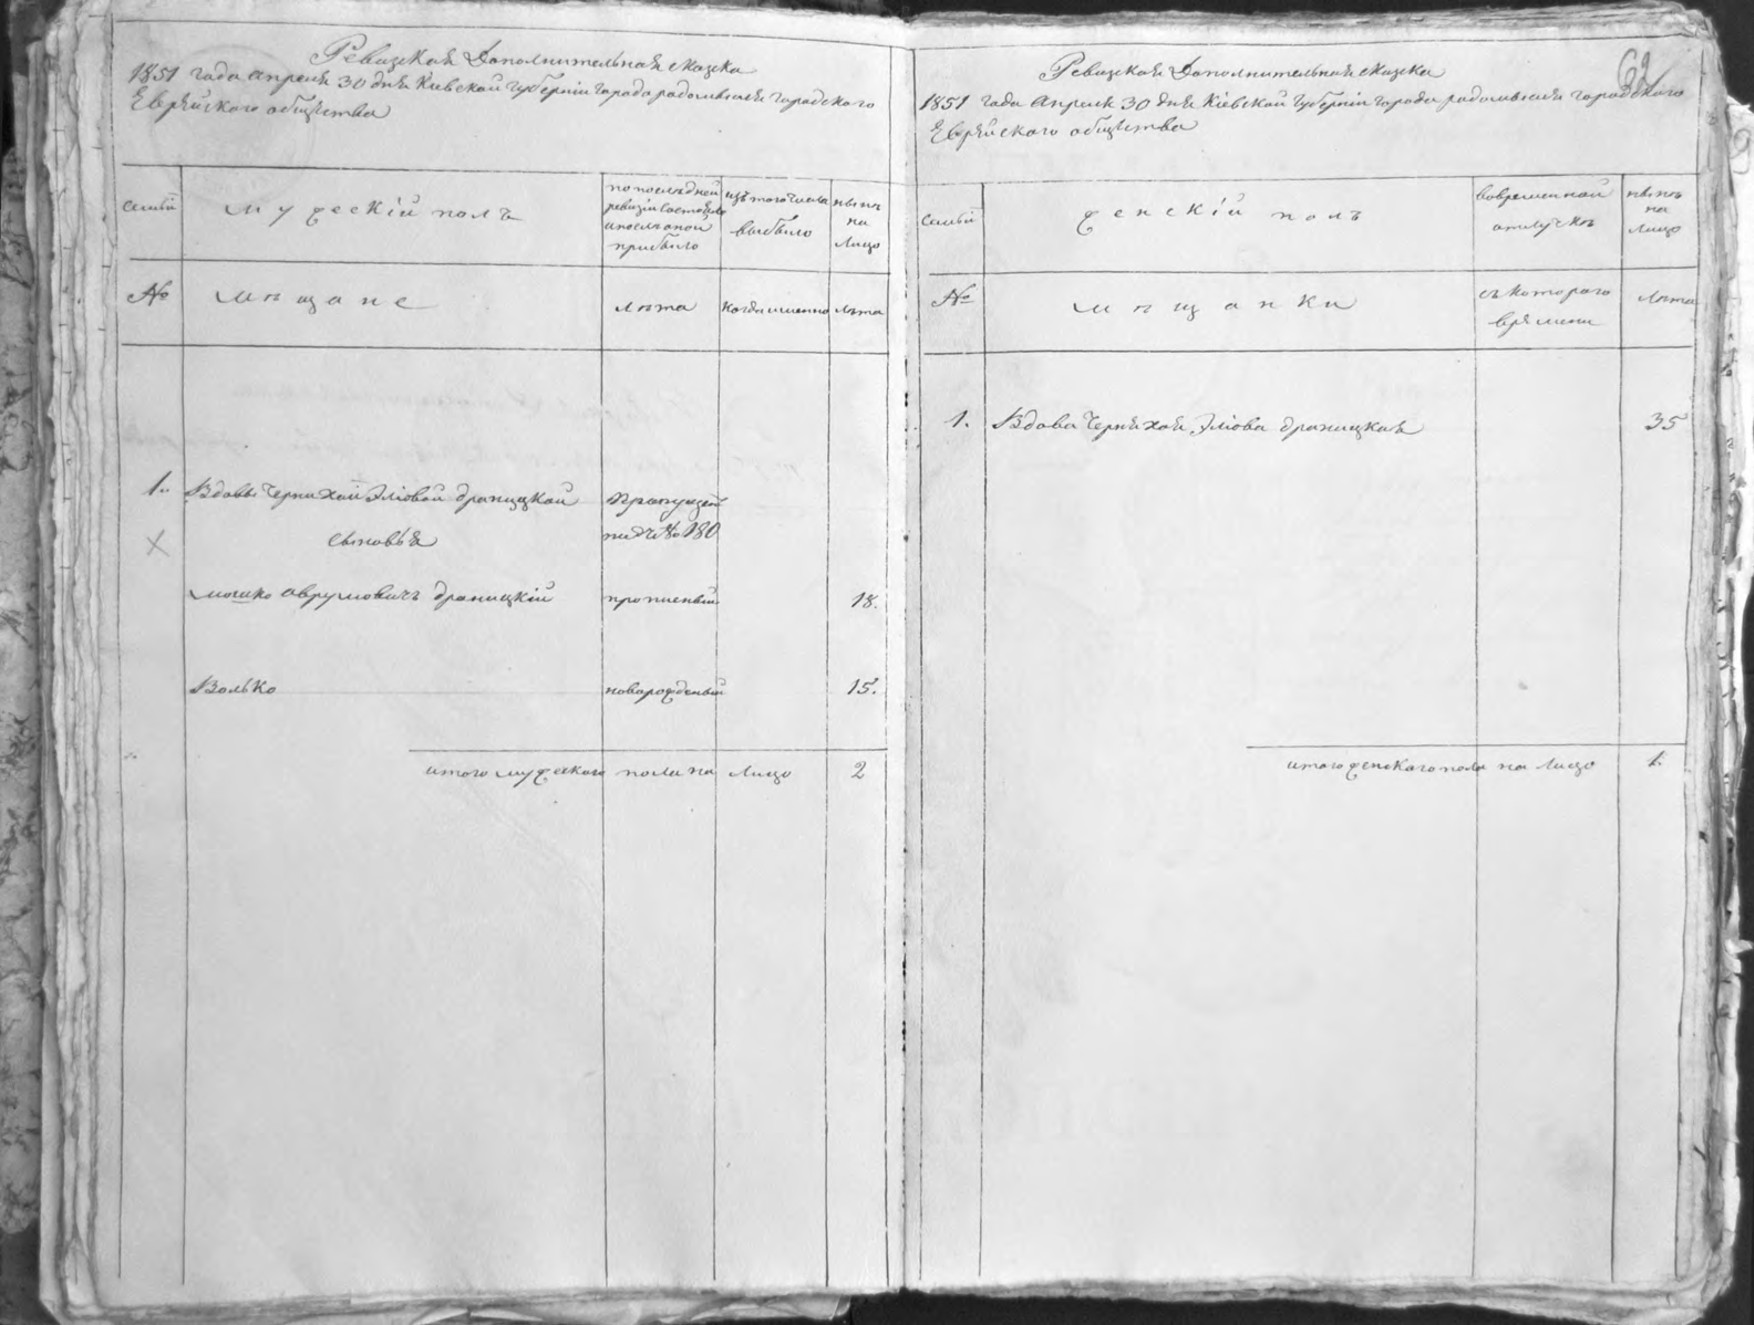 Ревизская Дополнительная Сказка
1851 года Апреля 30 дня Киевской Губерніи города радомысля городского
Еврейского общества
семьи
мужескій полъ
по последней
ревизіи состояло
и после оной
прибыло
изъ того числа
выбыло
ныне
на
лицо
№
мещане
лета
когда именно
лета
1.
Вдовы Чернихой Эліовой драницкой
сыновья
под № 180
мошко Аврумовичъ драницкій
прописный
18.
Волько
новорожденый
15.
итого мужеского пола на лицо
2
62
Ревизская Дополнительная Сказка
1851 года Апреля 30 дня Кіевской Губерніи города радомысля городского
Еврейского общества
семьи
женскій полъ
во временной
отлучке
ныне
на
лицо
№
мещанки
съ которого
времени
лета
1.
Вдова Черняхоя Эліова драницкая
35
итого женского пола на лицо
1.